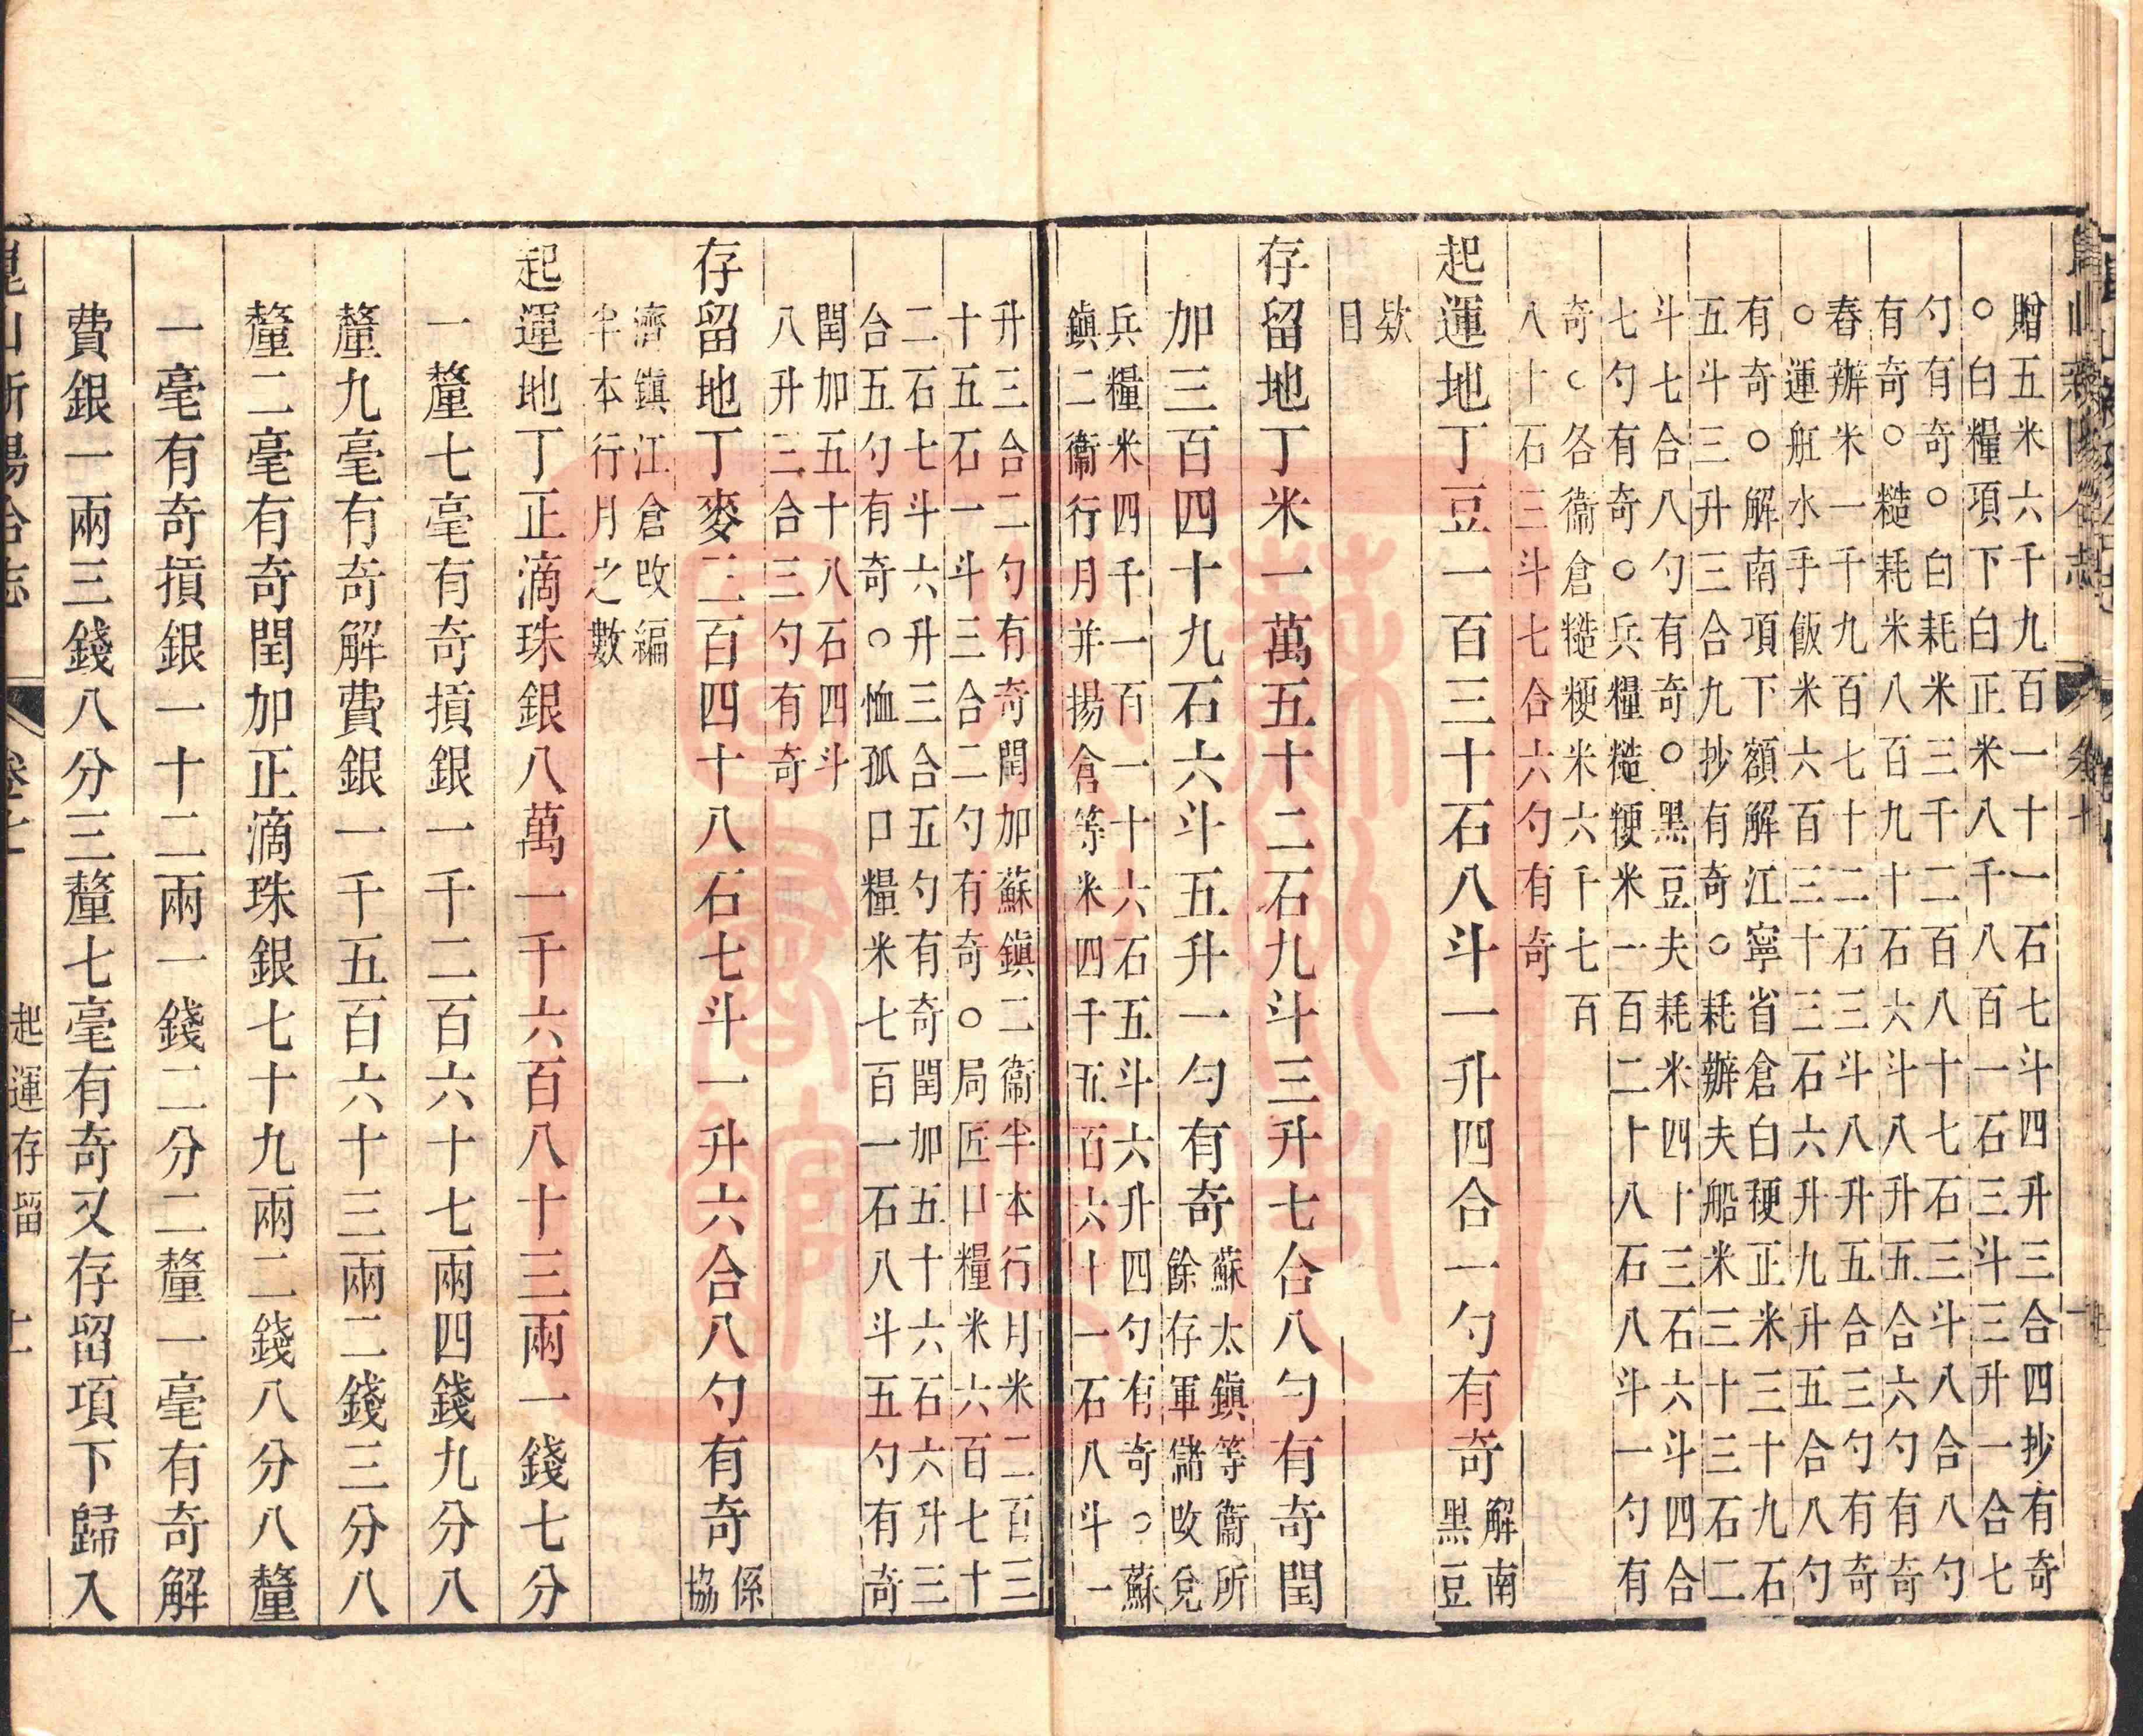 贈五米六千九百一十一石七斗四升三合四抄有奇
○白糧項下白正米八千八百一石三斗三升一合七
勺有奇○白耗米三千二百八十七石三斗八合八勺
有奇○糙耗米八百九十石六斗八升五合六勺有奇
舂辦米一千九百七十二石三斗八升五合三勺有奇
○運舡水手飯米六百三十三石六升九升五合八勺
有奇○解南項下額解江寧省倉白稉正米三十九石
五斗三升三合九抄有奇○耗辦夫船米三十三石二
斗七合八勺有奇○黑豆夫耗米四十三石六斗四合
七勺有奇○兵糧糙粳米一百二十八石八斗一勺有
奇○各衞倉糙粳米六千七百
八十石三斗七合六勺有奇
起運地丁豆一百三十石八斗一升四合一勺有奇解南
黑豆
欵
目
存留地丁米一萬五十二石九斗三升七合八勺有奇閏
加三百四十九石六斗五升一勺有奇蘇太鎭等衞所
餘存軍儲改兌
兵糧米四千一百一十六石五斗六升四勺有奇○蘇
鎭二衞行月并揚倉等米四千五百六十一石八斗一
升三合二勺有奇閏加蘇鎭二衞半本行月米二百三
十五石一斗三合二勺有奇○局匠口糧米六百七十
二石七斗六升三合五勺有奇閏加五十六石六升三
合五勺有奇○恤孤口糧米七百一石八斗五勺有奇
閏加五十八石四斗
八升三合三勺有奇
存留地丁麥二百四十八石七斗一升六合八勺有奇係
協
濟鎭江倉改編
半本行月之數
起運地丁正滴珠銀八萬一千六百八十三兩一錢七分
一釐七毫有奇摃銀一千二百六十七兩四錢九分八
釐九毫有奇解費銀一千五百六十三兩二錢三分八
釐二毫有奇閏加正滴珠銀七十九兩二錢八分八釐
一毫有奇摃銀一十二兩一錢二分二釐一毫有奇解
費銀一兩三錢八分三釐七毫有奇又存留項下歸入
起運存留